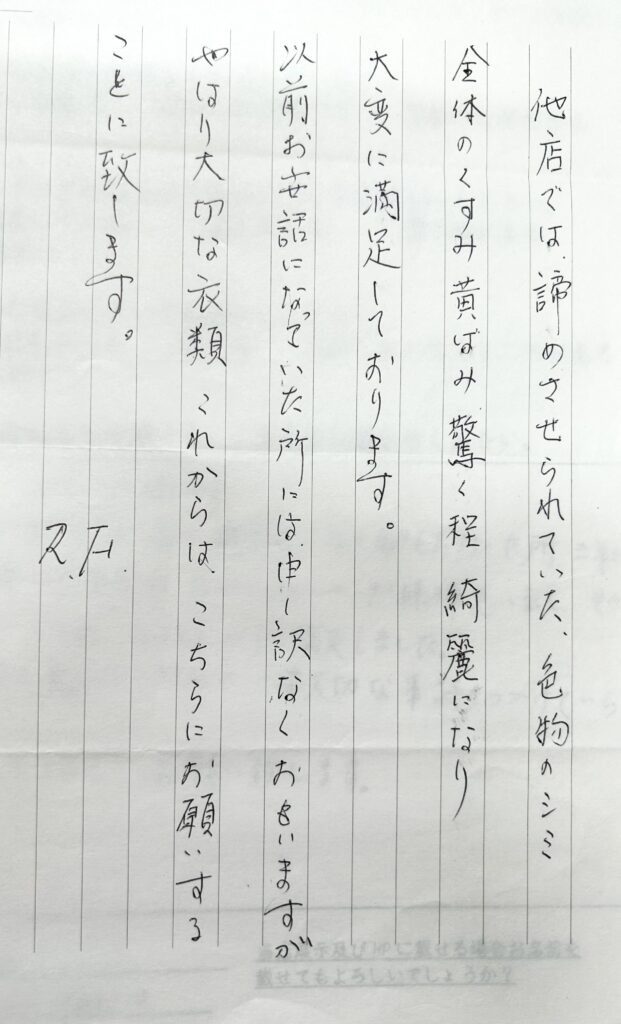 他店では、諦めさせられていた、色物のシミ
全体のくすみ黄ばみ、驚く程 綺麗になり
大変に満足しております。
以前お世話になっていた所には、申し訳なくおもいますが
やはり大切な衣類 これからは、こちらにお願いする
ことに致します。
R.H.
載せてもよろしいでしょうか?